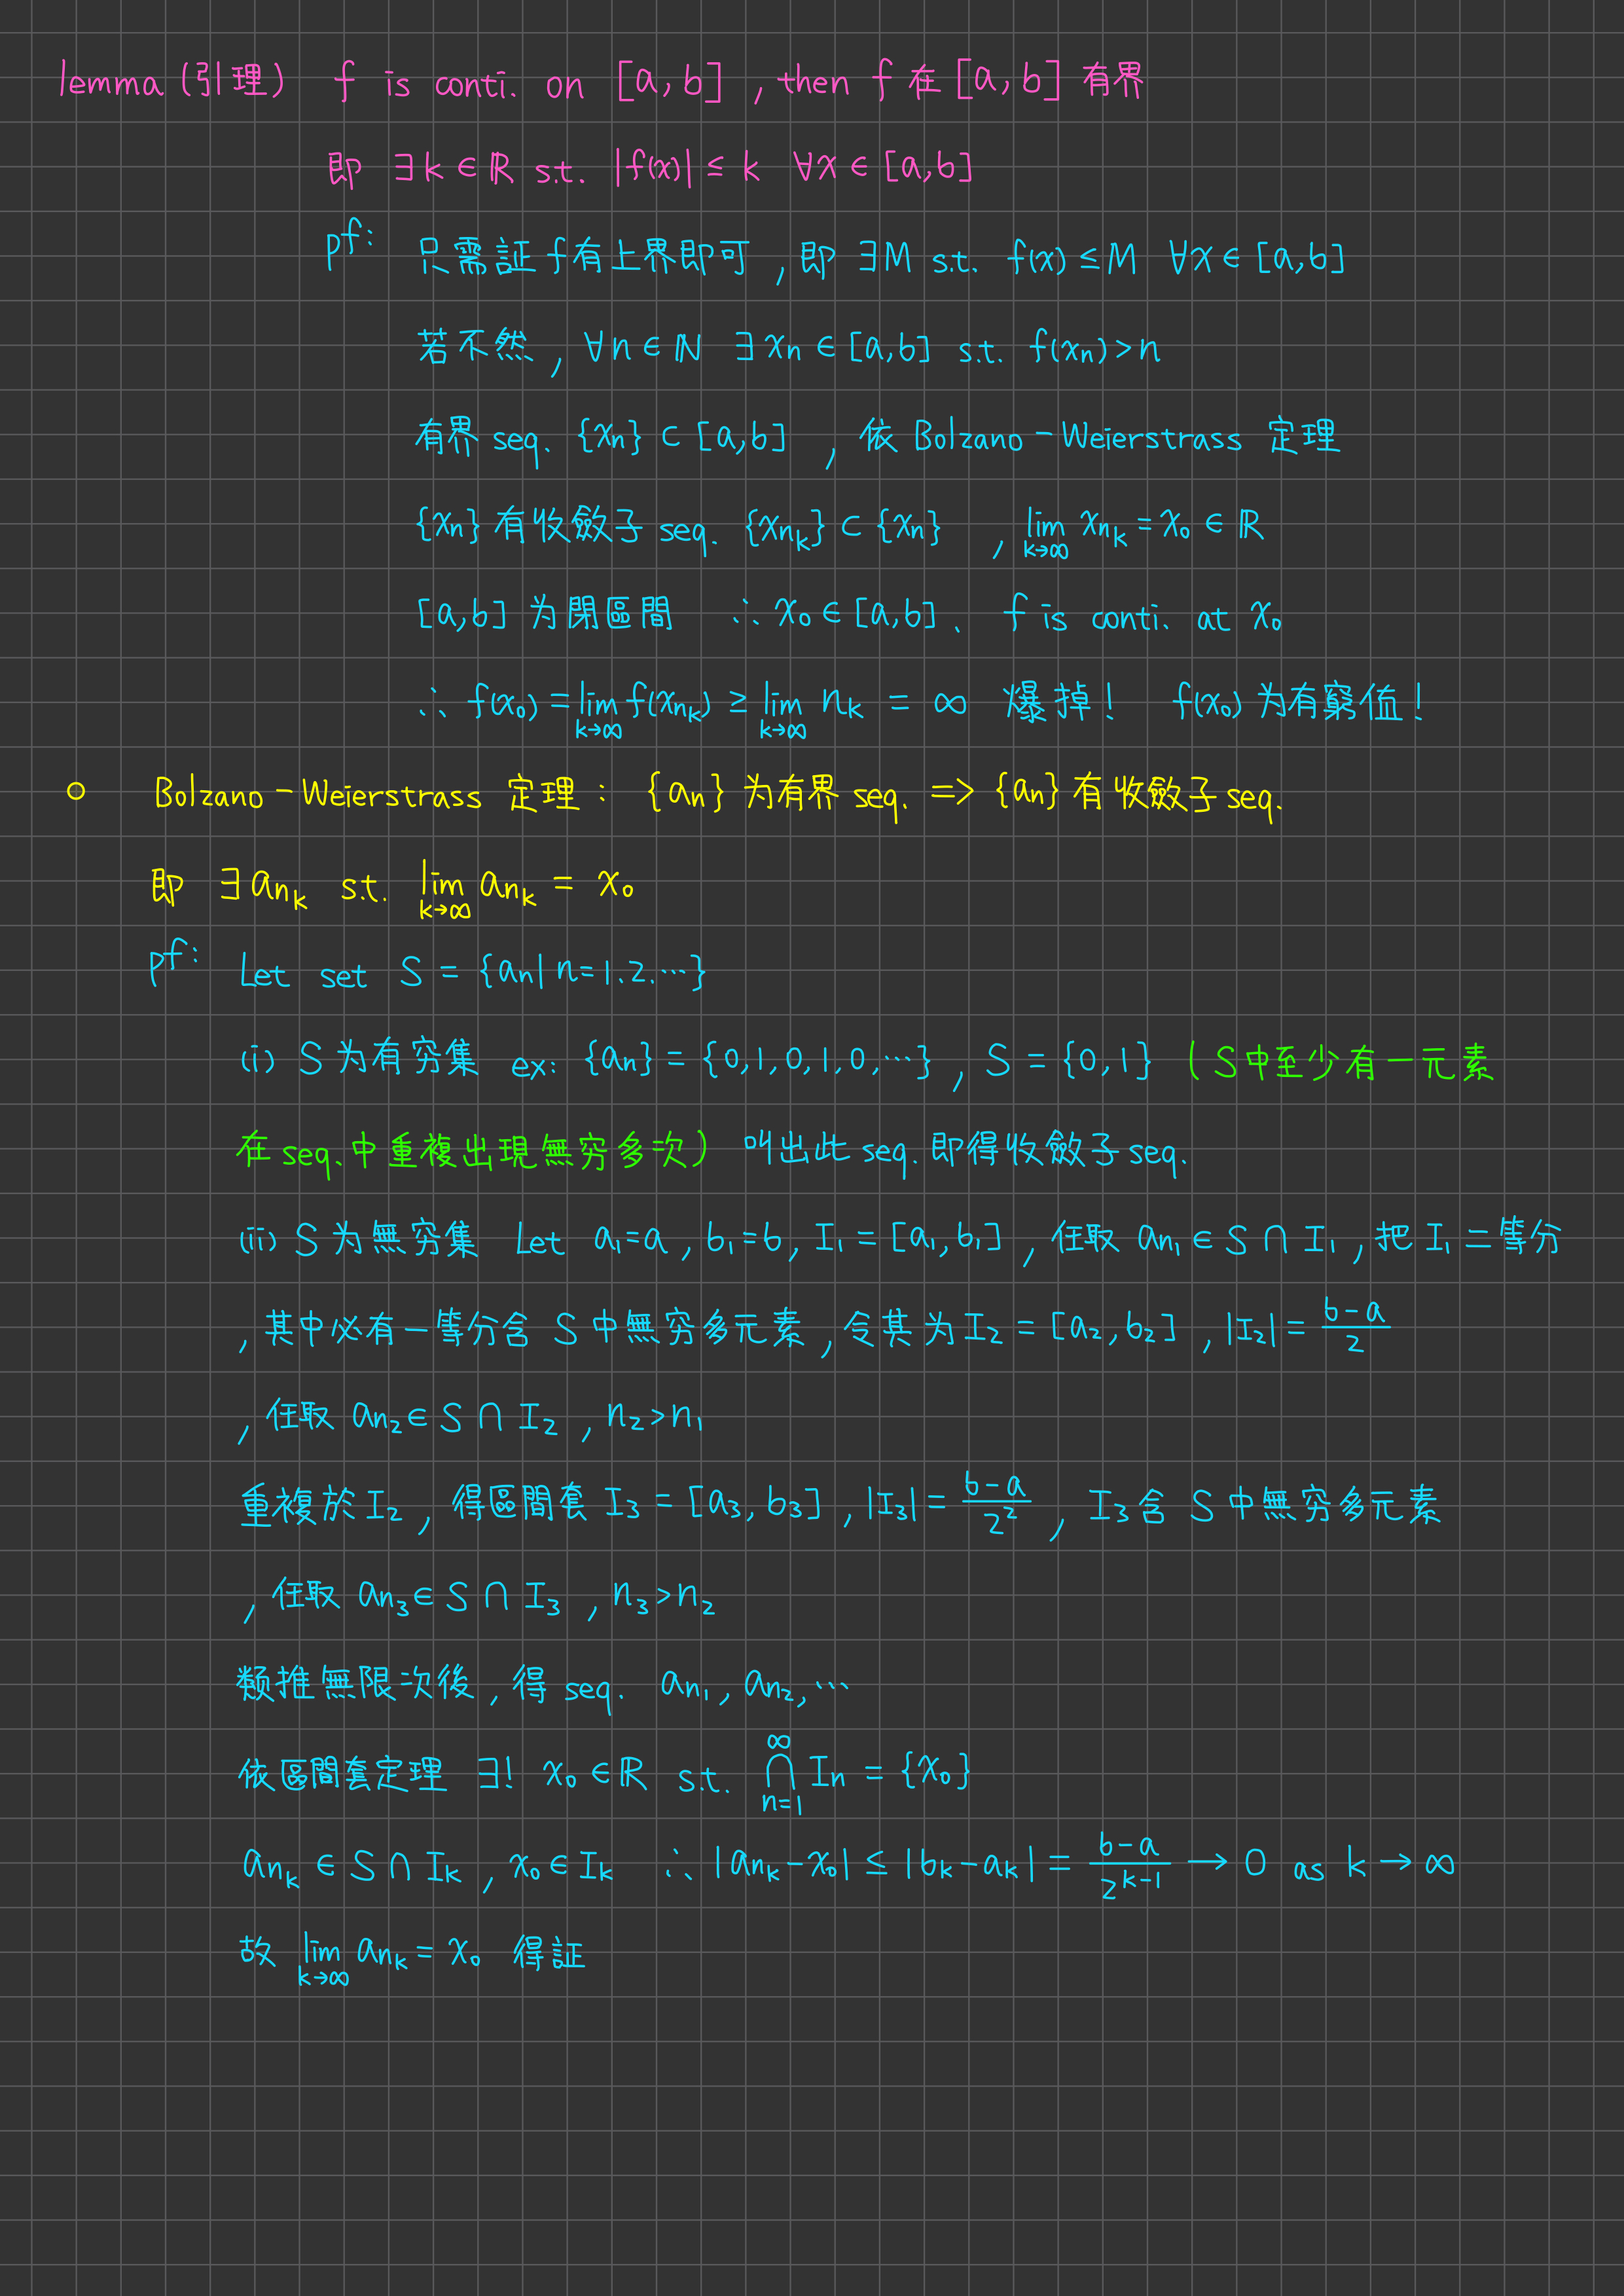 lemma (引理) f is conti. on [a,b] , then f 在 [a,b] 有界
即 ∃k∈ℝ s.t. |f(x)| ≤ k ∀x∈[a,b]
pf: 只需証 f 有上界即可 , 即 ∃M s.t. f(x) ≤ M ∀x∈[a,b]
若不然 , ∀n∈ℕ ∃xₙ∈[a,b] s.t. f(xₙ)>n
有界 seq. {xₙ} ⊂ [a,b] , 依 Bolzano-Weierstrass 定理
{xₙ} 有收斂子 seq. {x_{n_k}} ⊂ {xₙ} , lim_{k→∞} x_{n_k} = x₀ ∈ ℝ
[a,b] 为閉區間 ∴ x₀∈[a,b] . f is conti. at x₀
∴ f(x₀) = lim_{k→∞} f(x_{n_k}) ≥ lim_{k→∞} n_k = ∞ 爆掉! f(x₀) 为有窮值!
○ Bolzano-Weierstrass 定理 : {aₙ} 为有界 seq. => {aₙ} 有收斂子 seq.
即 ∃a_{n_k} s.t. lim_{k→∞} a_{n_k} = x₀
pf: Let set S = {aₙ| n=1.2.…}
(i) S 为有穷集 ex: {aₙ} = {0,1,0,1,0,…} , S = {0,1} ( S中至少有一元素
在 seq. 中重複出現無穷多次) 叫出此 seq. 即得收斂子 seq.
(ii) S 为無穷集 Let a₁=a , b₁=b , I₁ = [a₁,b₁] , 任取 a_{n₁} ∈ S ∩ I₁ , 把 I₁ 二等分
, 其中必有一等分含 S 中無穷多元素 , 令其为 I₂ = [a₂,b₂] , |I₂| = (b-a)/2
, 任取 a_{n₂} ∈ S ∩ I₂ , n₂>n₁
重複於 I₂ , 得區間套 I₃ = [a₃,b₃] , |I₃| = (b-a)/2² , I₃ 含 S 中無穷多元素
, 任取 a_{n₃} ∈ S ∩ I₃ , n₃>n₂
類推無限次後 , 得 seq. a_{n₁} , a_{n₂} , …
依區間套定理 ∃! x₀∈ℝ s.t. ⋂_{n=1}^{∞} Iₙ = {x₀}
a_{n_k} ∈ S ∩ I_k , x₀ ∈ I_k ∴ |a_{n_k} - x₀| ≤ |b_k - a_k| = (b-a)/2^{k-1} → 0 as k → ∞
故 lim_{k→∞} a_{n_k} = x₀ 得証